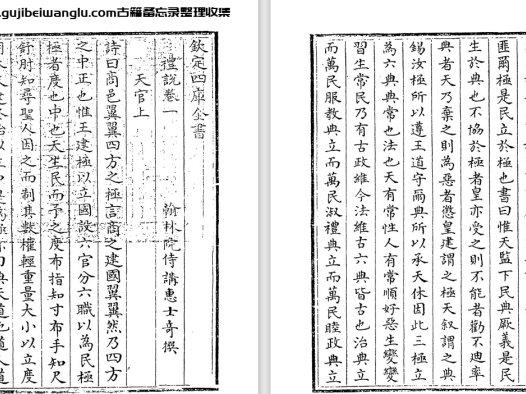 .gujibeiwanglu.com古籍备忘录整理收集
欽定四庫全書
禮說卷一
翰林院侍講惠士奇撰
天官上
詩曰商邑翼翼四方之極言商之建國翼翼然乃四方
之中正也惟王建極以立國設六官分六職以為民極
極者度也中也天生民而予之度布指知寸布手知尺
舒肘知尋聖人因之而制其數權輕重量大小以立度
匪爾極是民立於極也書曰惟天監下民典厥義是民
生於典也不協於極者皇亦受之則不能者勸不迪率
典者天乃棄之則為惡者懲皇建謂之極天叙謂之典
錫汝極所以遵王道守爾典所以承天休因此三極立
為六典典常也法也天有常性人有常順好惡生變變
習生常民乃有古政維今法維古六典皆古也治典立
而萬民服教典立而萬民淑禮典立而萬民睦政典立